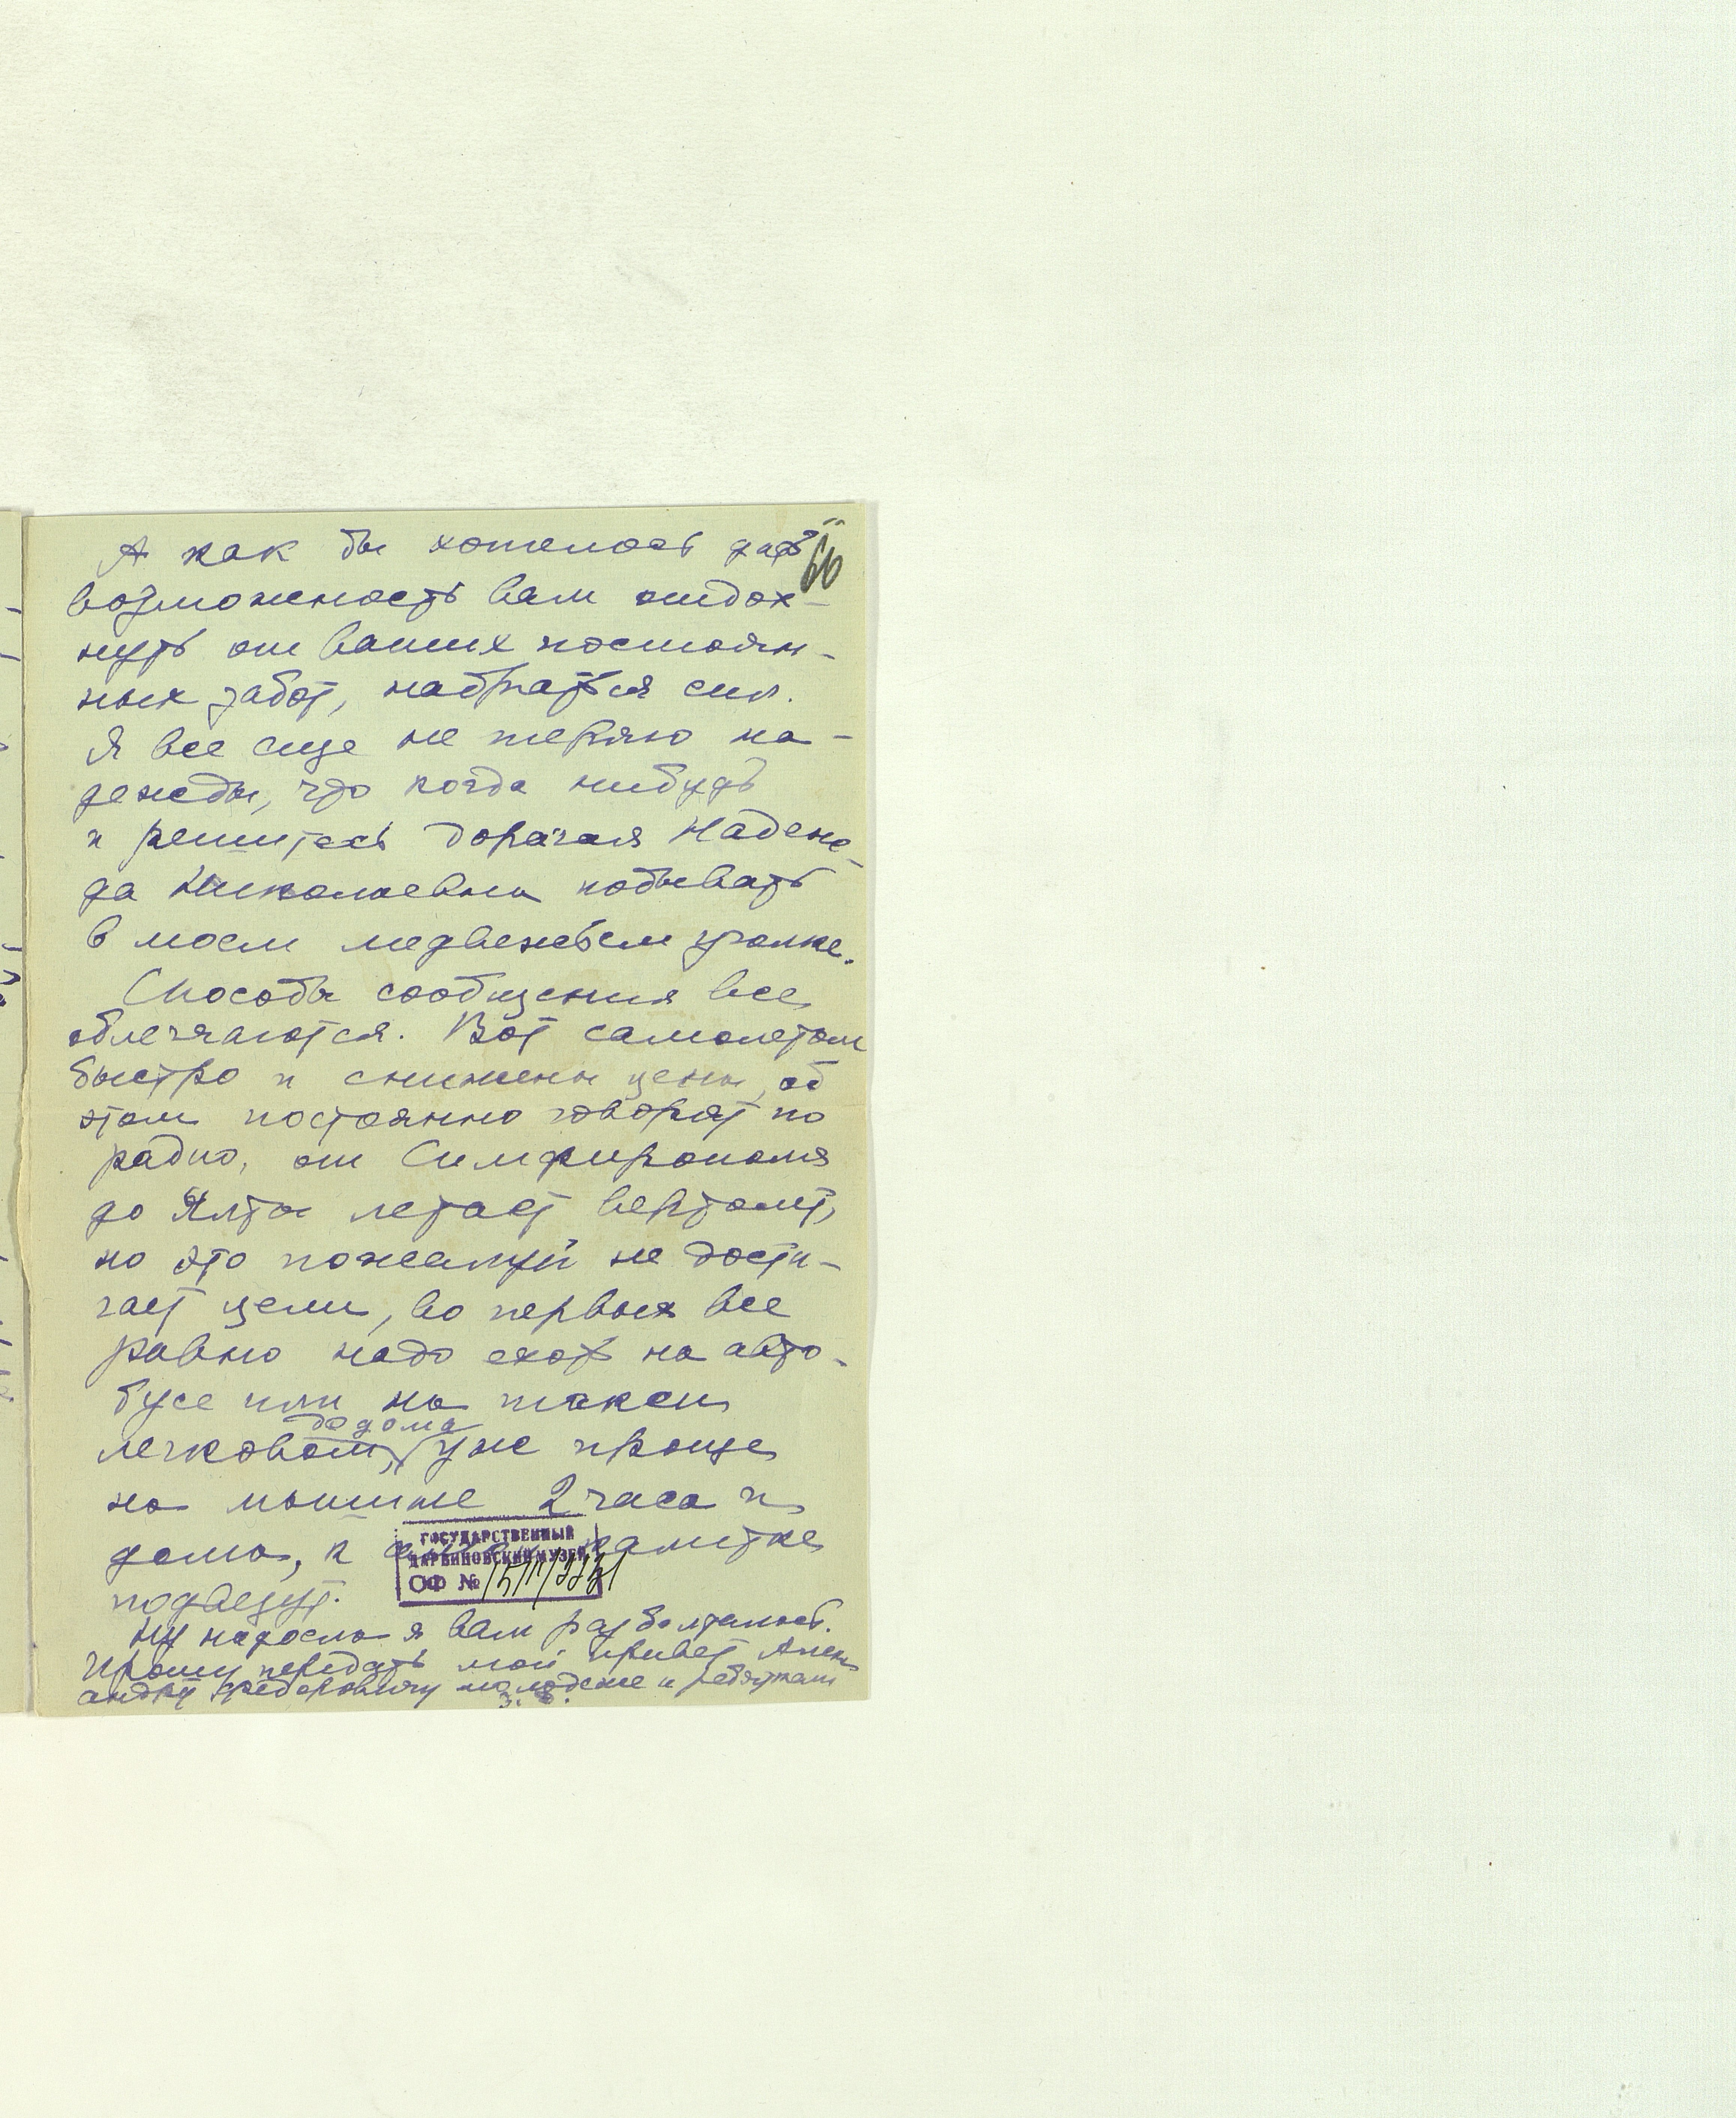 66
А как бы хотелось дать
возможность вам отдох-
нуть от ваших постоян-
ных забот, набраться сил.
Я все еще не теряю на-
дежды, что когда нибудь
и решитесь дорогая Надеж-
да Николаевна побывать
в моем медвежьем уголке.
Способы сообщения все
облегчаются. Вот самолетом
быстро и снижены цены, об
этом постоянно говорят по
радио, от Симфирополя
до Ялты летает вертолет,
но это пожалуй не дости-
гает цели, во первых все
равно надо ехать на авто-
бусе или на такси
до дома
легковом, уже проще
на машине 2 часа и
дома, к калитке
подвезут.
ГОСУДАРСТВЕННЫЙ
ДАРВИНОВСКИЙ МУЗЕЙ
ОФ №
Ну надоела я вам разболталась.
Прошу передать мой привет Алек-
андру Федоровичу молодежи и ребяткам